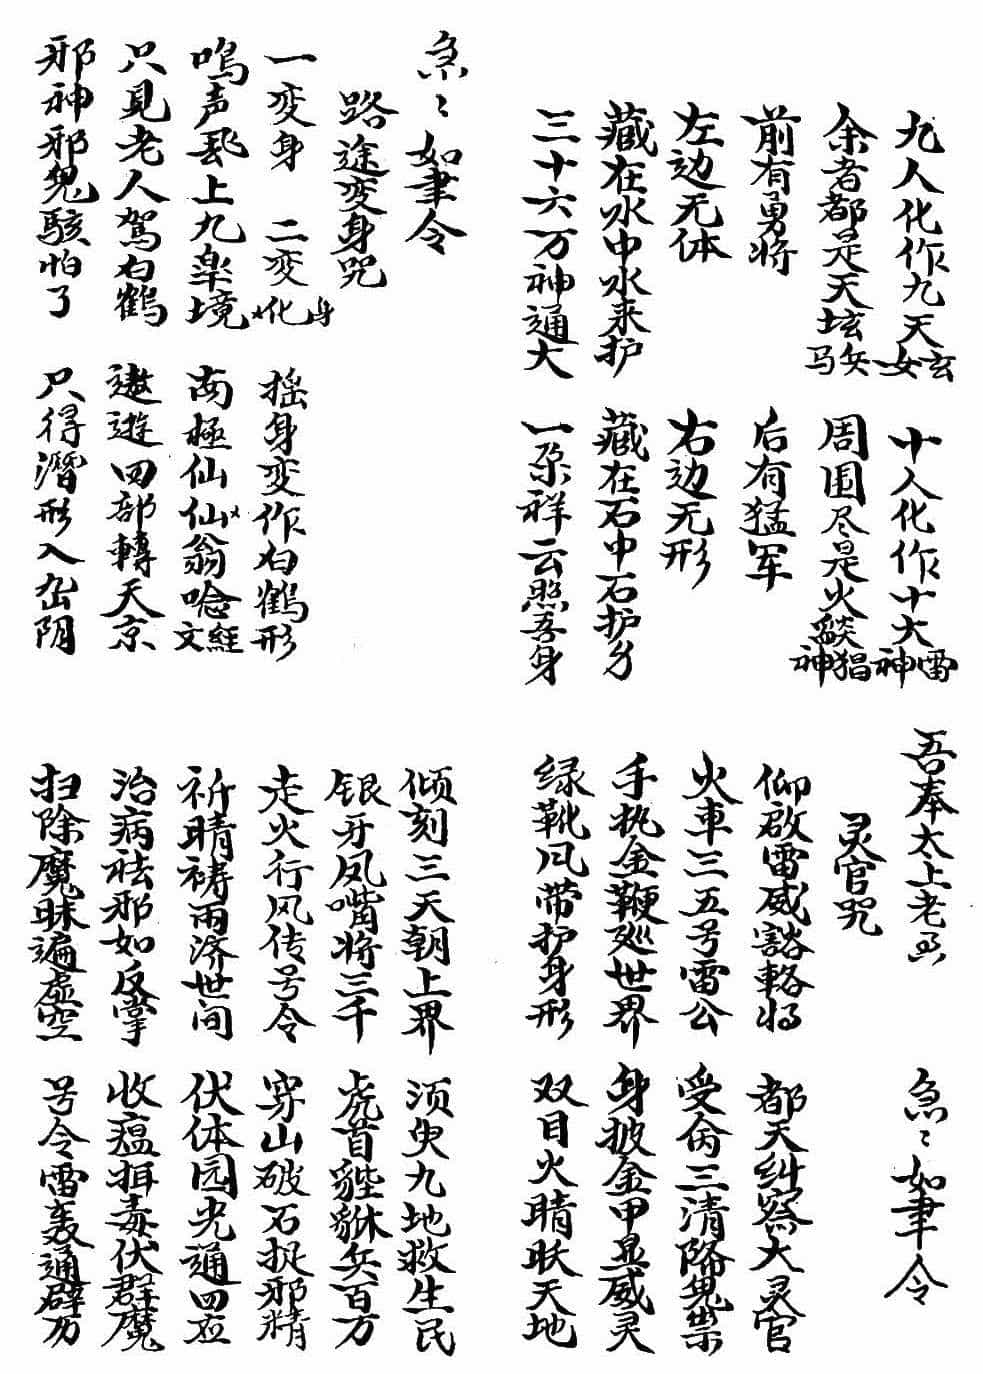 九人化作九天玄女 十人化作十大雷神
余者都是天坛兵马 周围尽是火焱猖神
前有勇将 后有猛军
左边无体 右边无形
藏在水中水来护 藏在石中石护身
三十六万神通大 一朵祥云照吾身
急〻如聿令
路途变身咒
一变身 二变化身 摇身变作白鹤形
鸣声飛上九楽境 南極仙仙翁唸經文
只見老人駕白鶴 遨遊四部轉天京
邪神邪鬼駭怕了 只得潛形入岀阴
吾奉太上老君 急〻如聿令
灵官咒
仰啟雷威豁輅将 都天纠察大灵官
火車三五号雷公 受命三清降鬼祟
手执金鞭廵世界 身披金甲显威灵
绿靴风带护身形 双目火睛耿天地
倾刻三天朝上界 须臾九地救生民
银牙凤嘴将三千 虎首貔貅兵百万
走火行风传号令 穿山破石捉邪精
祈晴祷雨济世间 伏体园光通四应
治病祛邪如反掌 收瘟摄毒伏群魔
扫除魔昧遍虚空 号令雷轰通辟历